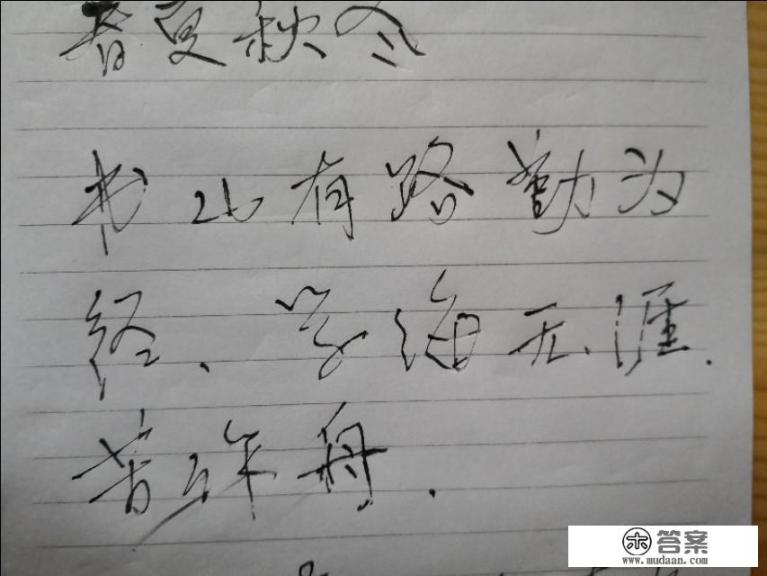 春夏秋冬
书山有路勤为
经、学海无涯.
苦作舟.
答案
www.mudaan.com